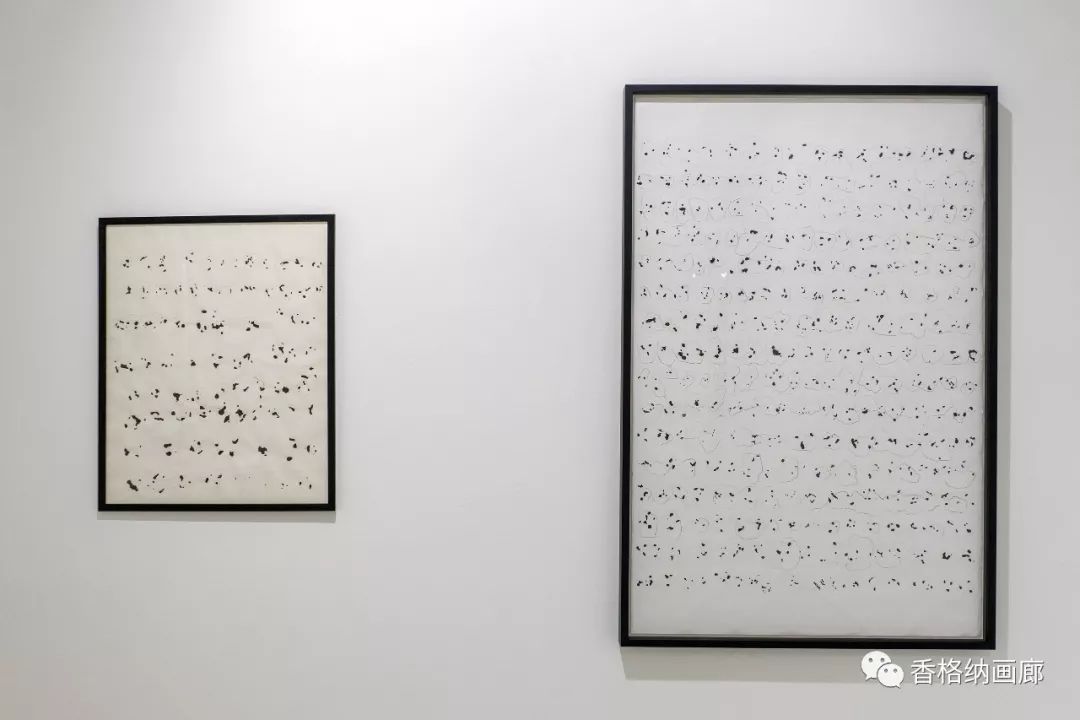 香格纳画廊